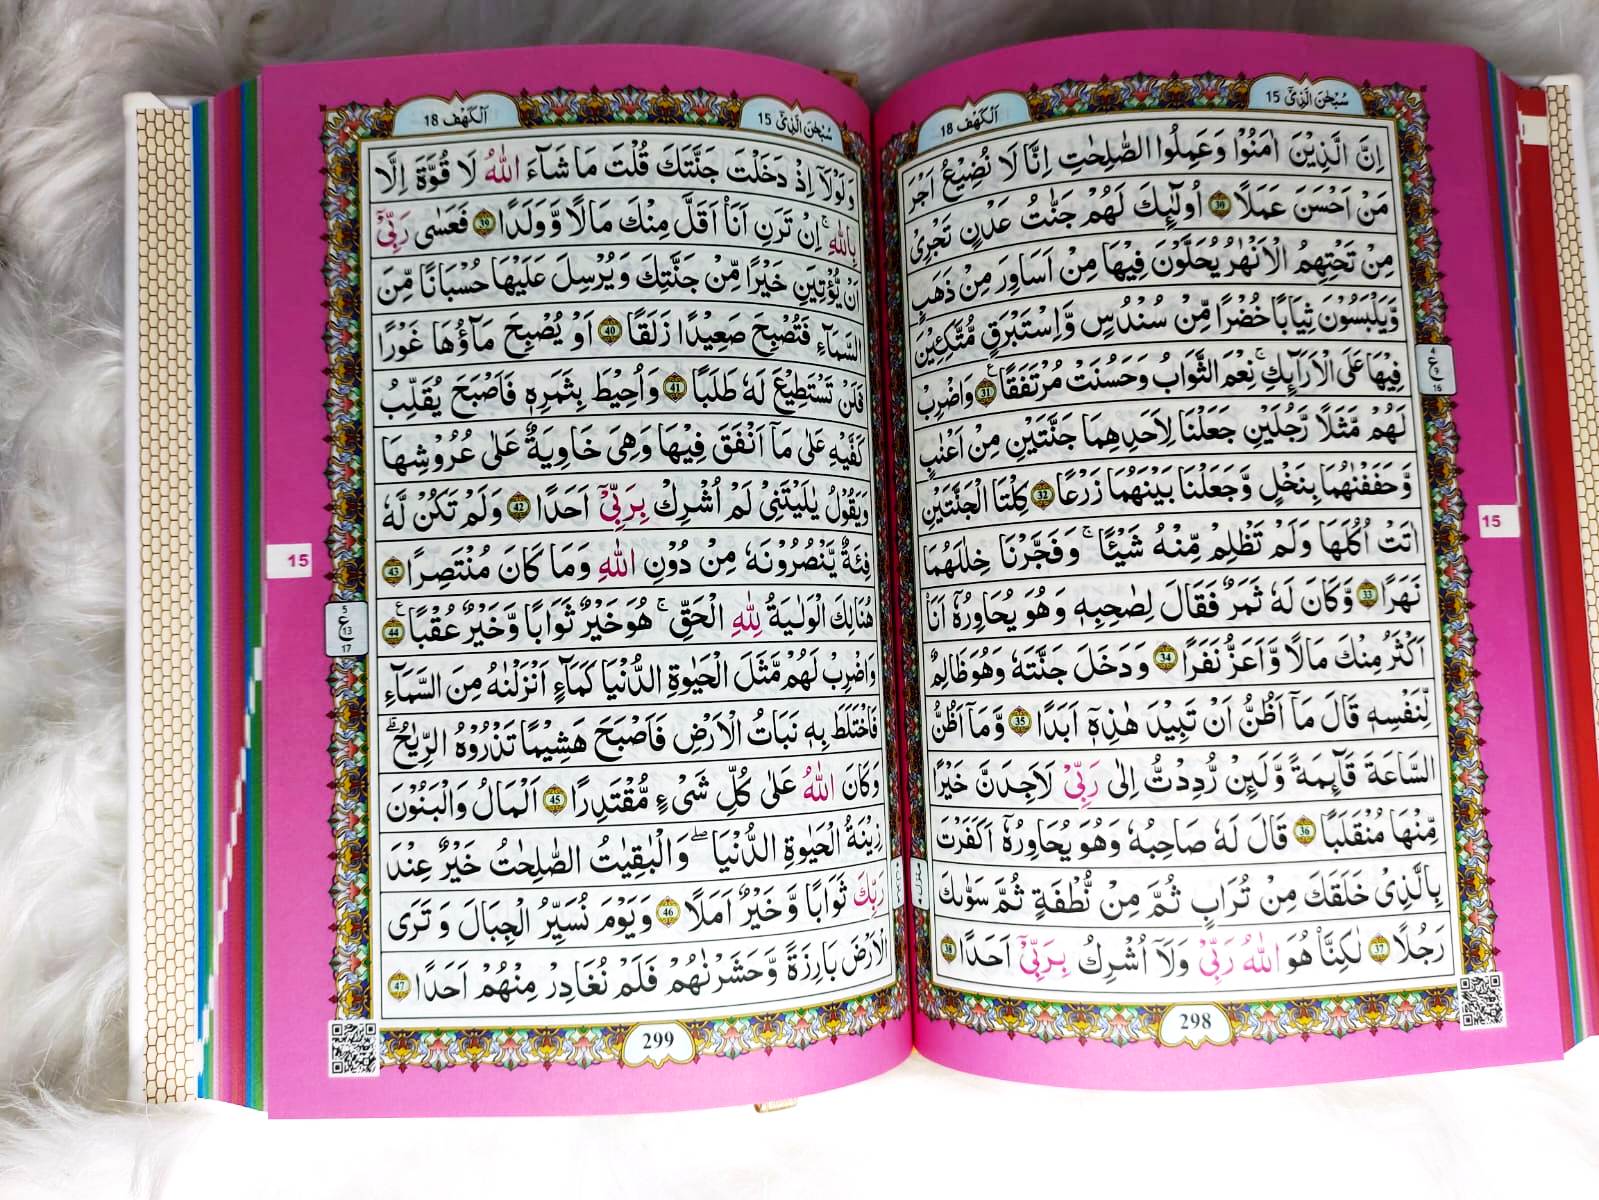 سُبْحٰنَ الَّذِیْۤ 15
اَلْكَهْف 18
اِنَّ الَّذِیْنَ اٰمَنُوْا وَعَمِلُوا الصّٰلِحٰتِ اِنَّا لَا نُضِیْعُ اَجْرَ
مَنْ اَحْسَنَ عَمَلًا 30 اُولٰٓئِكَ لَهُمْ جَنّٰتُ عَدْنٍ تَجْرِیْ
مِنْ تَحْتِهِمُ الْاَنْهٰرُ یُحَلَّوْنَ فِیْهَا مِنْ اَسَاوِرَ مِنْ ذَهَبٍ
وَّیَلْبَسُوْنَ ثِیَابًا خُضْرًا مِّنْ سُنْدُسٍ وَّاِسْتَبْرَقٍ مُّتَّكِـِٕیْنَ
فِیْهَا عَلَی الْاَرَآئِكِ ؕ نِعْمَ الثَّوَابُ وَحَسُنَتْ مُرْتَفَقًا 31 وَاضْرِبْ
لَهُمْ مَّثَلًا رَّجُلَیْنِ جَعَلْنَا لِاَحَدِهِمَا جَنَّتَیْنِ مِنْ اَعْنَابٍ
وَّحَفَفْنٰهُمَا بِنَخْلٍ وَّجَعَلْنَا بَیْنَهُمَا زَرْعًا 32 كِلْتَا الْجَنَّتَیْنِ
اٰتَتْ اُكُلَهَا وَلَمْ تَظْلِمْ مِّنْهُ شَیْـًٔا ۙ وَّفَجَّرْنَا خِلٰلَهُمَا
نَهَرًا 33 وَّكَانَ لَهٗ ثَمَرٌ ۚ فَقَالَ لِصَاحِبِهٖ وَهُوَ یُحَاوِرُهٗۤ اَنَا
اَكْثَرُ مِنْكَ مَالًا وَّاَعَزُّ نَفَرًا 34 وَدَخَلَ جَنَّتَهٗ وَهُوَ ظَالِمٌ
لِّنَفْسِهٖ ۚ قَالَ مَاۤ اَظُنُّ اَنْ تَبِیْدَ هٰذِهٖۤ اَبَدًا 35 وَّمَاۤ اَظُنُّ
السَّاعَةَ قَآئِمَةً وَّلَىِٕنْ رُّدِدْتُّ اِلٰی رَبِّیْ لَاَجِدَنَّ خَیْرًا
مِّنْهَا مُنْقَلَبًا 36 قَالَ لَهٗ صَاحِبُهٗ وَهُوَ یُحَاوِرُهٗۤ اَكَفَرْتَ
بِالَّذِیْ خَلَقَكَ مِنْ تُرَابٍ ثُمَّ مِنْ نُّطْفَةٍ ثُمَّ سَوّٰىكَ
رَجُلًا 37 لٰكِنَّا۠ هُوَ اللّٰهُ رَبِّیْ وَلَاۤ اُشْرِكُ بِرَبِّیْۤ اَحَدًا 38
4
ع
16
15
298
سُبْحٰنَ الَّذِیْۤ 15
اَلْكَهْف 18
وَلَوْلَاۤ اِذْ دَخَلْتَ جَنَّتَكَ قُلْتَ مَا شَآءَ اللّٰهُ لَا قُوَّةَ اِلَّا
بِاللّٰهِ ۚ اِنْ تَرَنِ اَنَا اَقَلَّ مِنْكَ مَالًا وَّوَلَدًا 39 فَعَسٰی رَبِّیْۤ
اَنْ یُّؤْتِیَنِ خَیْرًا مِّنْ جَنَّتِكَ وَیُرْسِلَ عَلَیْهَا حُسْبَانًا مِّنَ
السَّمَآءِ فَتُصْبِحَ صَعِیْدًا زَلَقًا 40 اَوْ یُصْبِحَ مَآؤُهَا غَوْرًا
فَلَنْ تَسْتَطِیْعَ لَهٗ طَلَبًا 41 وَاُحِیْطَ بِثَمَرِهٖ فَاَصْبَحَ یُقَلِّبُ
كَفَّیْهِ عَلٰی مَاۤ اَنْفَقَ فِیْهَا وَهِیَ خَاوِیَةٌ عَلٰی عُرُوْشِهَا
وَیَقُوْلُ یٰلَیْتَنِیْ لَمْ اُشْرِكْ بِرَبِّیْۤ اَحَدًا 42 وَلَمْ تَكُنْ لَّهٗ
فِئَةٌ یَّنْصُرُوْنَهٗ مِنْ دُوْنِ اللّٰهِ وَمَا كَانَ مُنْتَصِرًا 43
هُنَالِكَ الْوَلَایَةُ لِلّٰهِ الْحَقِّ ؕ هُوَ خَیْرٌ ثَوَابًا وَّخَیْرٌ عُقْبًا 44
وَاضْرِبْ لَهُمْ مَّثَلَ الْحَیٰوةِ الدُّنْیَا كَمَآءٍ اَنْزَلْنٰهُ مِنَ السَّمَآءِ
فَاخْتَلَطَ بِهٖ نَبَاتُ الْاَرْضِ فَاَصْبَحَ هَشِیْمًا تَذْرُوْهُ الرِّیٰحُ ؕ
وَكَانَ اللّٰهُ عَلٰی كُلِّ شَیْءٍ مُّقْتَدِرًا 45 اَلْمَالُ وَالْبَنُوْنَ
زِیْنَةُ الْحَیٰوةِ الدُّنْیَا ۚ وَالْبٰقِیٰتُ الصّٰلِحٰتُ خَیْرٌ عِنْدَ
رَبِّكَ ثَوَابًا وَّخَیْرٌ اَمَلًا 46 وَیَوْمَ نُسَیِّرُ الْجِبَالَ وَتَرَی
الْاَرْضَ بَارِزَةً ۙ وَّحَشَرْنٰهُمْ فَلَمْ نُغَادِرْ مِنْهُمْ اَحَدًا 47
5
ع
13
17
15
299